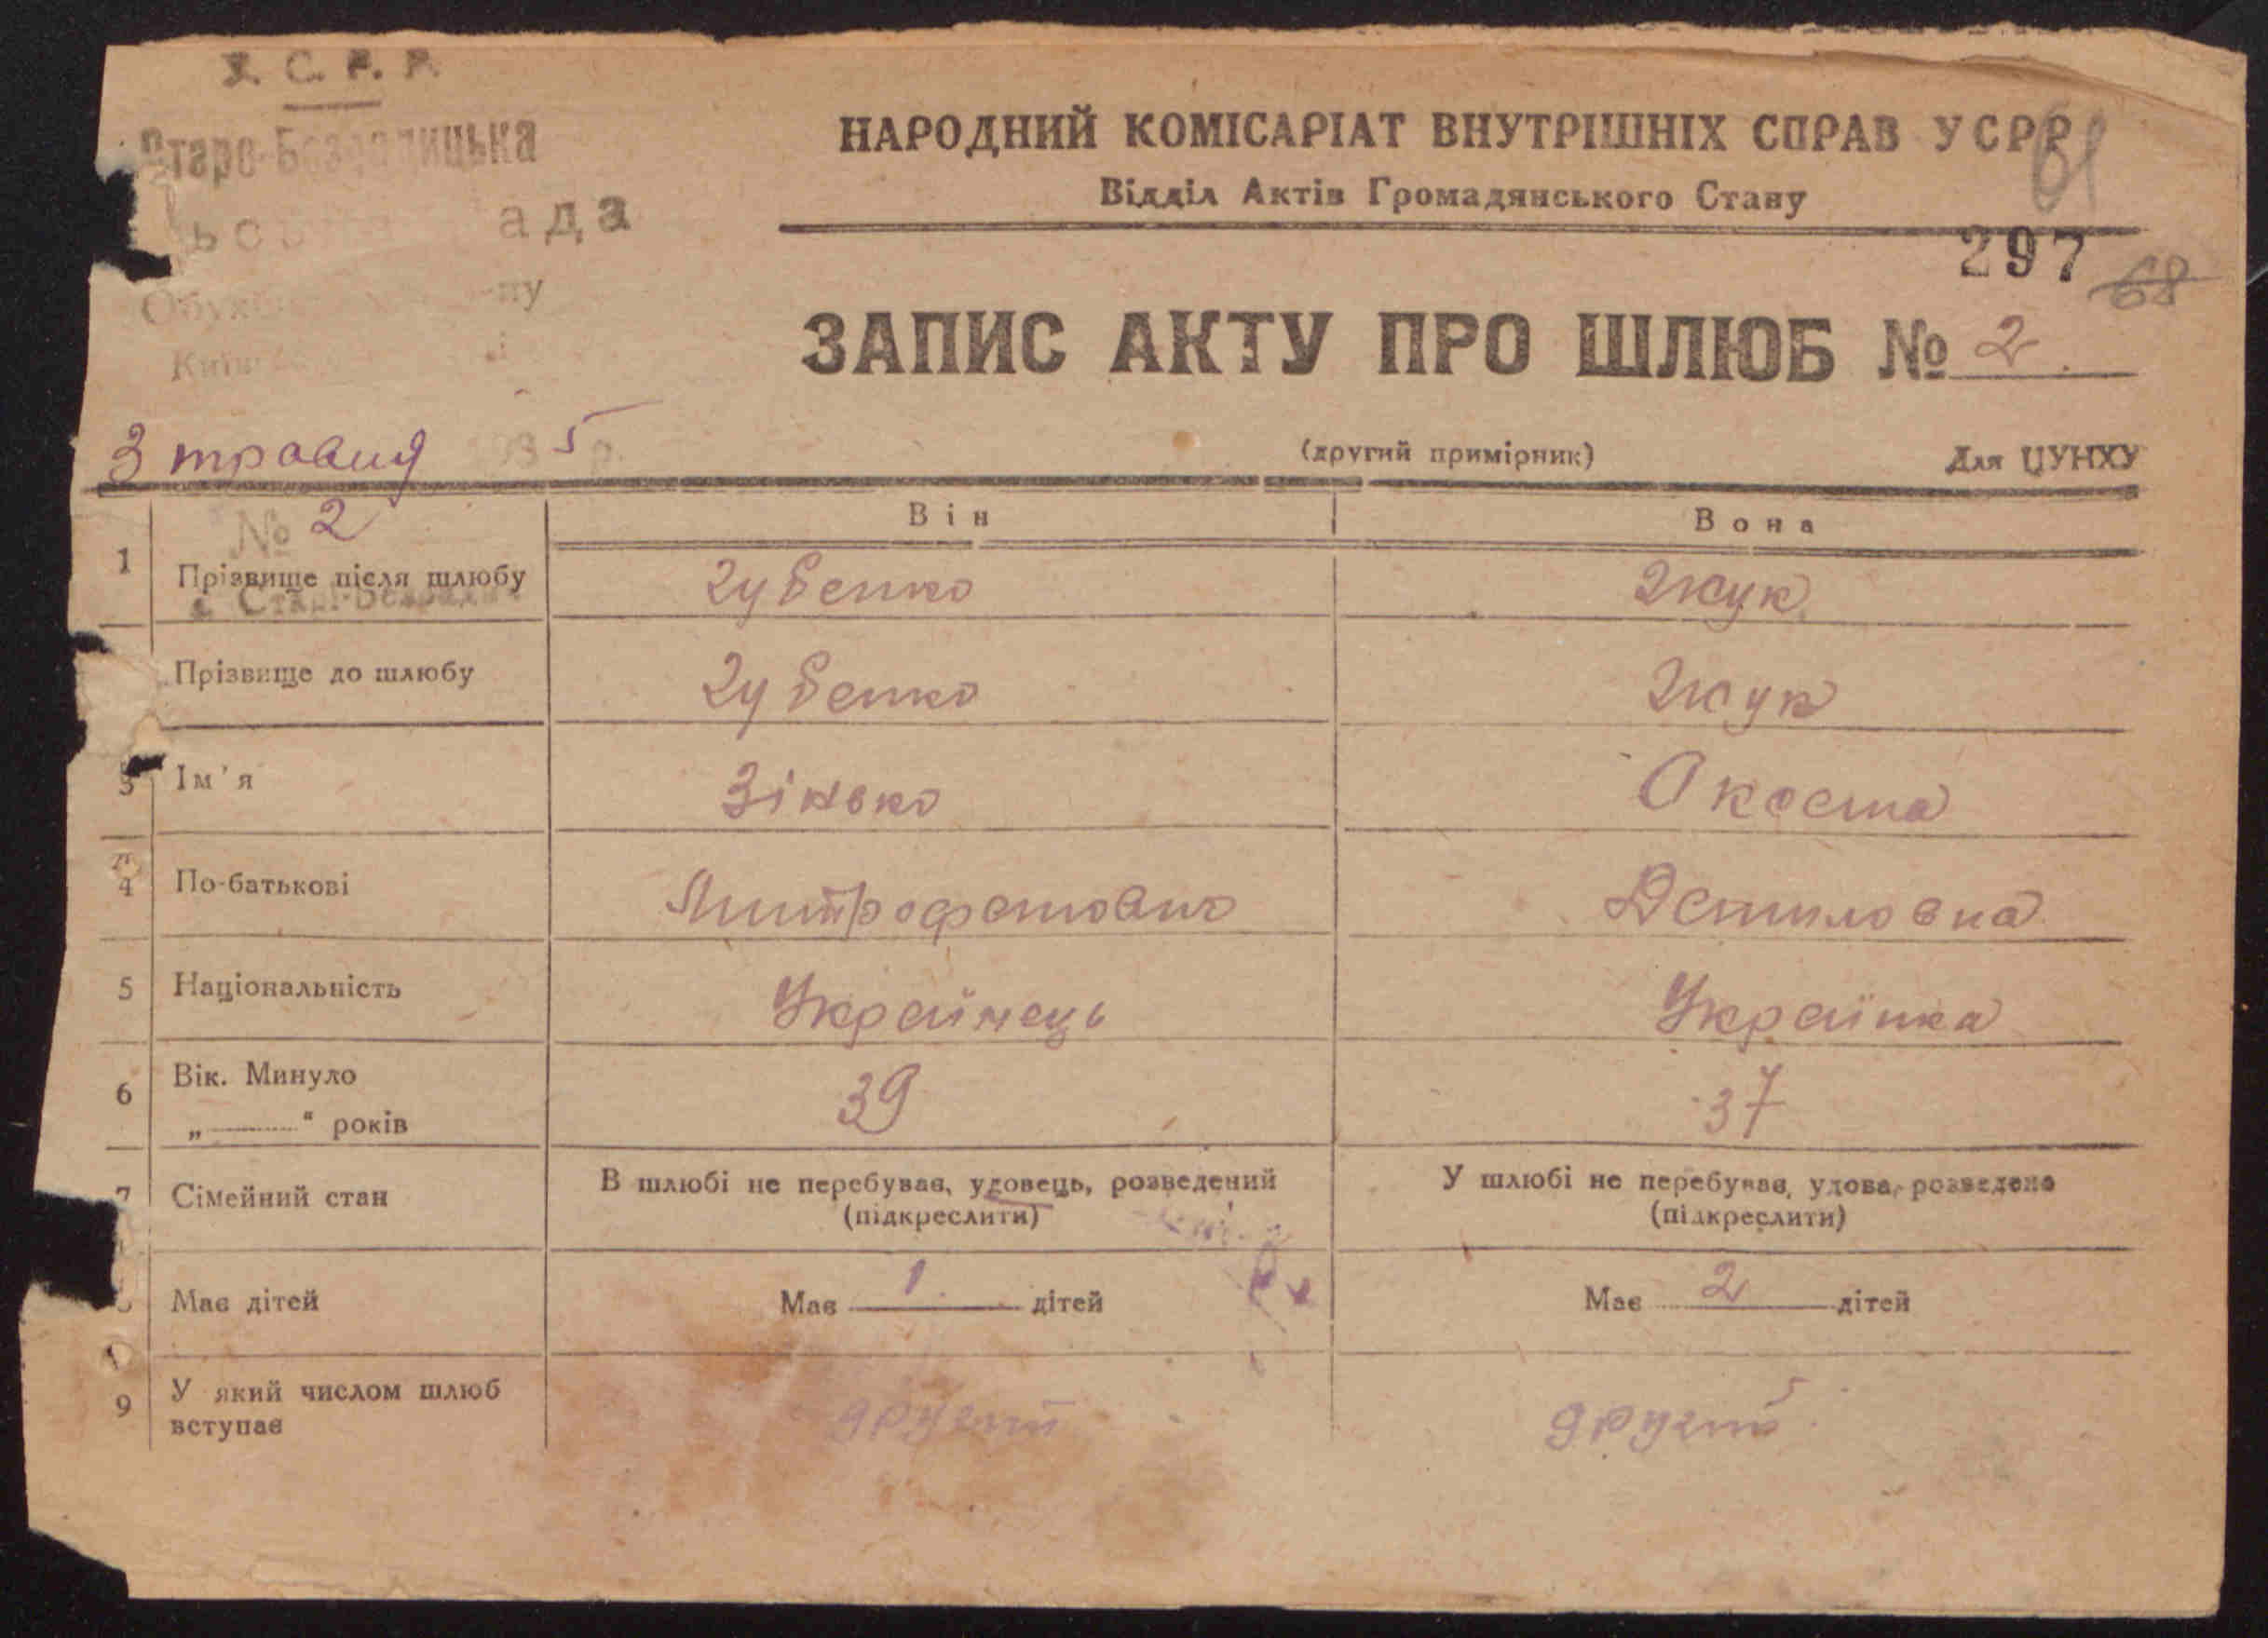 У. С. Р. Р.
Старо-Безрадицька
ада
НАРОДНИЙ КОМІСАРІАТ ВНУТРІШНІХ СПРАВ УСРР
61
Відділ Актів Громадянського Стану
297
68
ЗАПИС АКТУ ПРО ШЛЮБ № 2
3 травня 1935 р.
(другий примірник)
Для ЦУНХУ
№ 2
Він
Вона
1 Прізвище після шлюбу Губенко Жук
Прізвище до шлюбу Губенко Жук
3 Ім'я Зінько
4 По-батькові Митрофанович Даниловна
5 Національність Українець Українка
6 Вік. Минуло 39 37
„ “ років
7 Сімейний стан В шлюбі не перебував, удовець, розведений У шлюбі не перебував, удова, розведена
(підкреслити) (підкреслити)
Має дітей Має 1 дітей Має 2 дітей
9 У який числом шлюб вступає другий другий